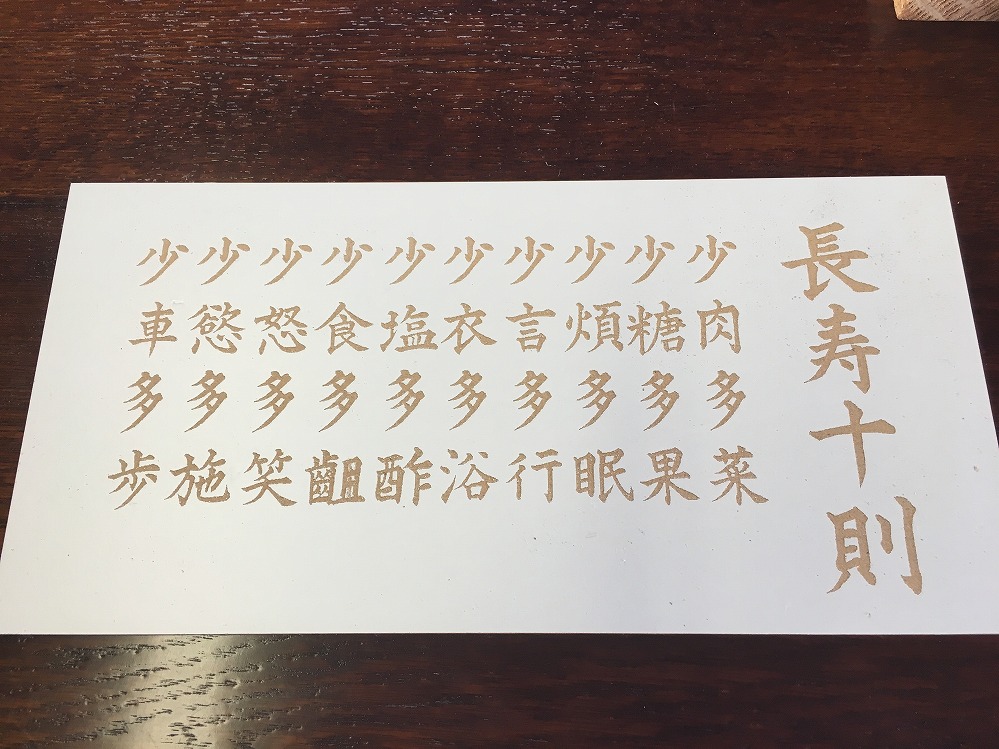 長寿十則
少肉多菜
少糖多果
少煩多眠
少言多行
少衣多浴
少塩多酢
少食多齟
少怒多笑
少慾多施
少車多歩